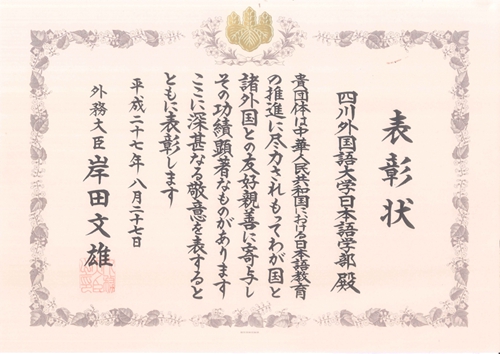 表彰状
四川外国語大学日本語学部 殿
貴団体は中華人民共和国における日本語教育
の推進に尽力されもってわが国と
諸外国との友好親善に寄与し
その功績顕著なものがあります
ここに深甚なる敬意を表すると
ともに表彰します
平成二十七年八月二十七日
外務大臣 岸田文雄